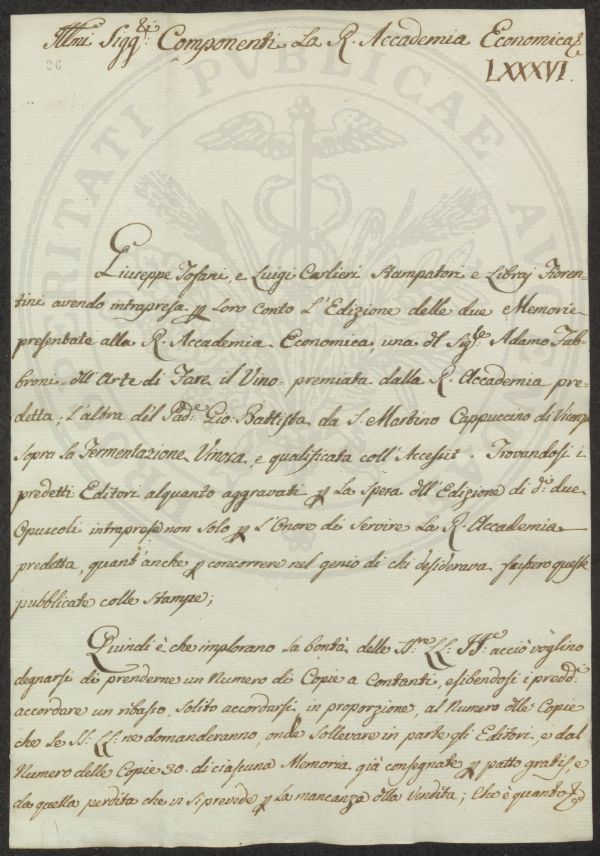 Illmi Sigg:ri Componenti La R. Accademia Economica &c
26
LXXXVI.
Giuseppe Tofani, e Luigi Carlieri Stampatori e Libraj Fioren-
tini avendo intrapresa p Loro Conto L'Edizione delle due Memorie
presentate alla R. Accademia Economica, una del Sig:r Adamo Fab-
broni dell'Arte di Fare il Vino premiata dalla R. Accademia pre-
detta; L'altra del Pad:e Gio: Battista da S. Martino Cappuccino di Vicenza
sopra la Fermentazione Vinosa, e qualificata coll'Accessit. Trovandosi i
predetti Editori alquanto aggravati p La Spesa dell'Edizione di d:i due
Opuscoli intraprese non solo p L'Onore di Servire La R. Accademia
predetta, quant'anche p concorrere nel genio di chi desiderava fussero queste
pubblicate colle Stampe;
Quindi è che implorano La bontà delle acciò voglino
degnarsi di prenderne un Numero di Copie a Contanti, esibendosi i predd:i
accordare un ribasso, Solito accordarsi, in proporzione al Numero delle Copie
che Le SS: LL: ne domanderanno, onde Sollevare in parte gli Editori, e dal
Numero delle Copie 30. di ciascuna Memoria già consegnate p patto gratis, e
da quella perdita che vi si prevede p La mancanza della Vendita; Che è quanto &c
PVBLICAE